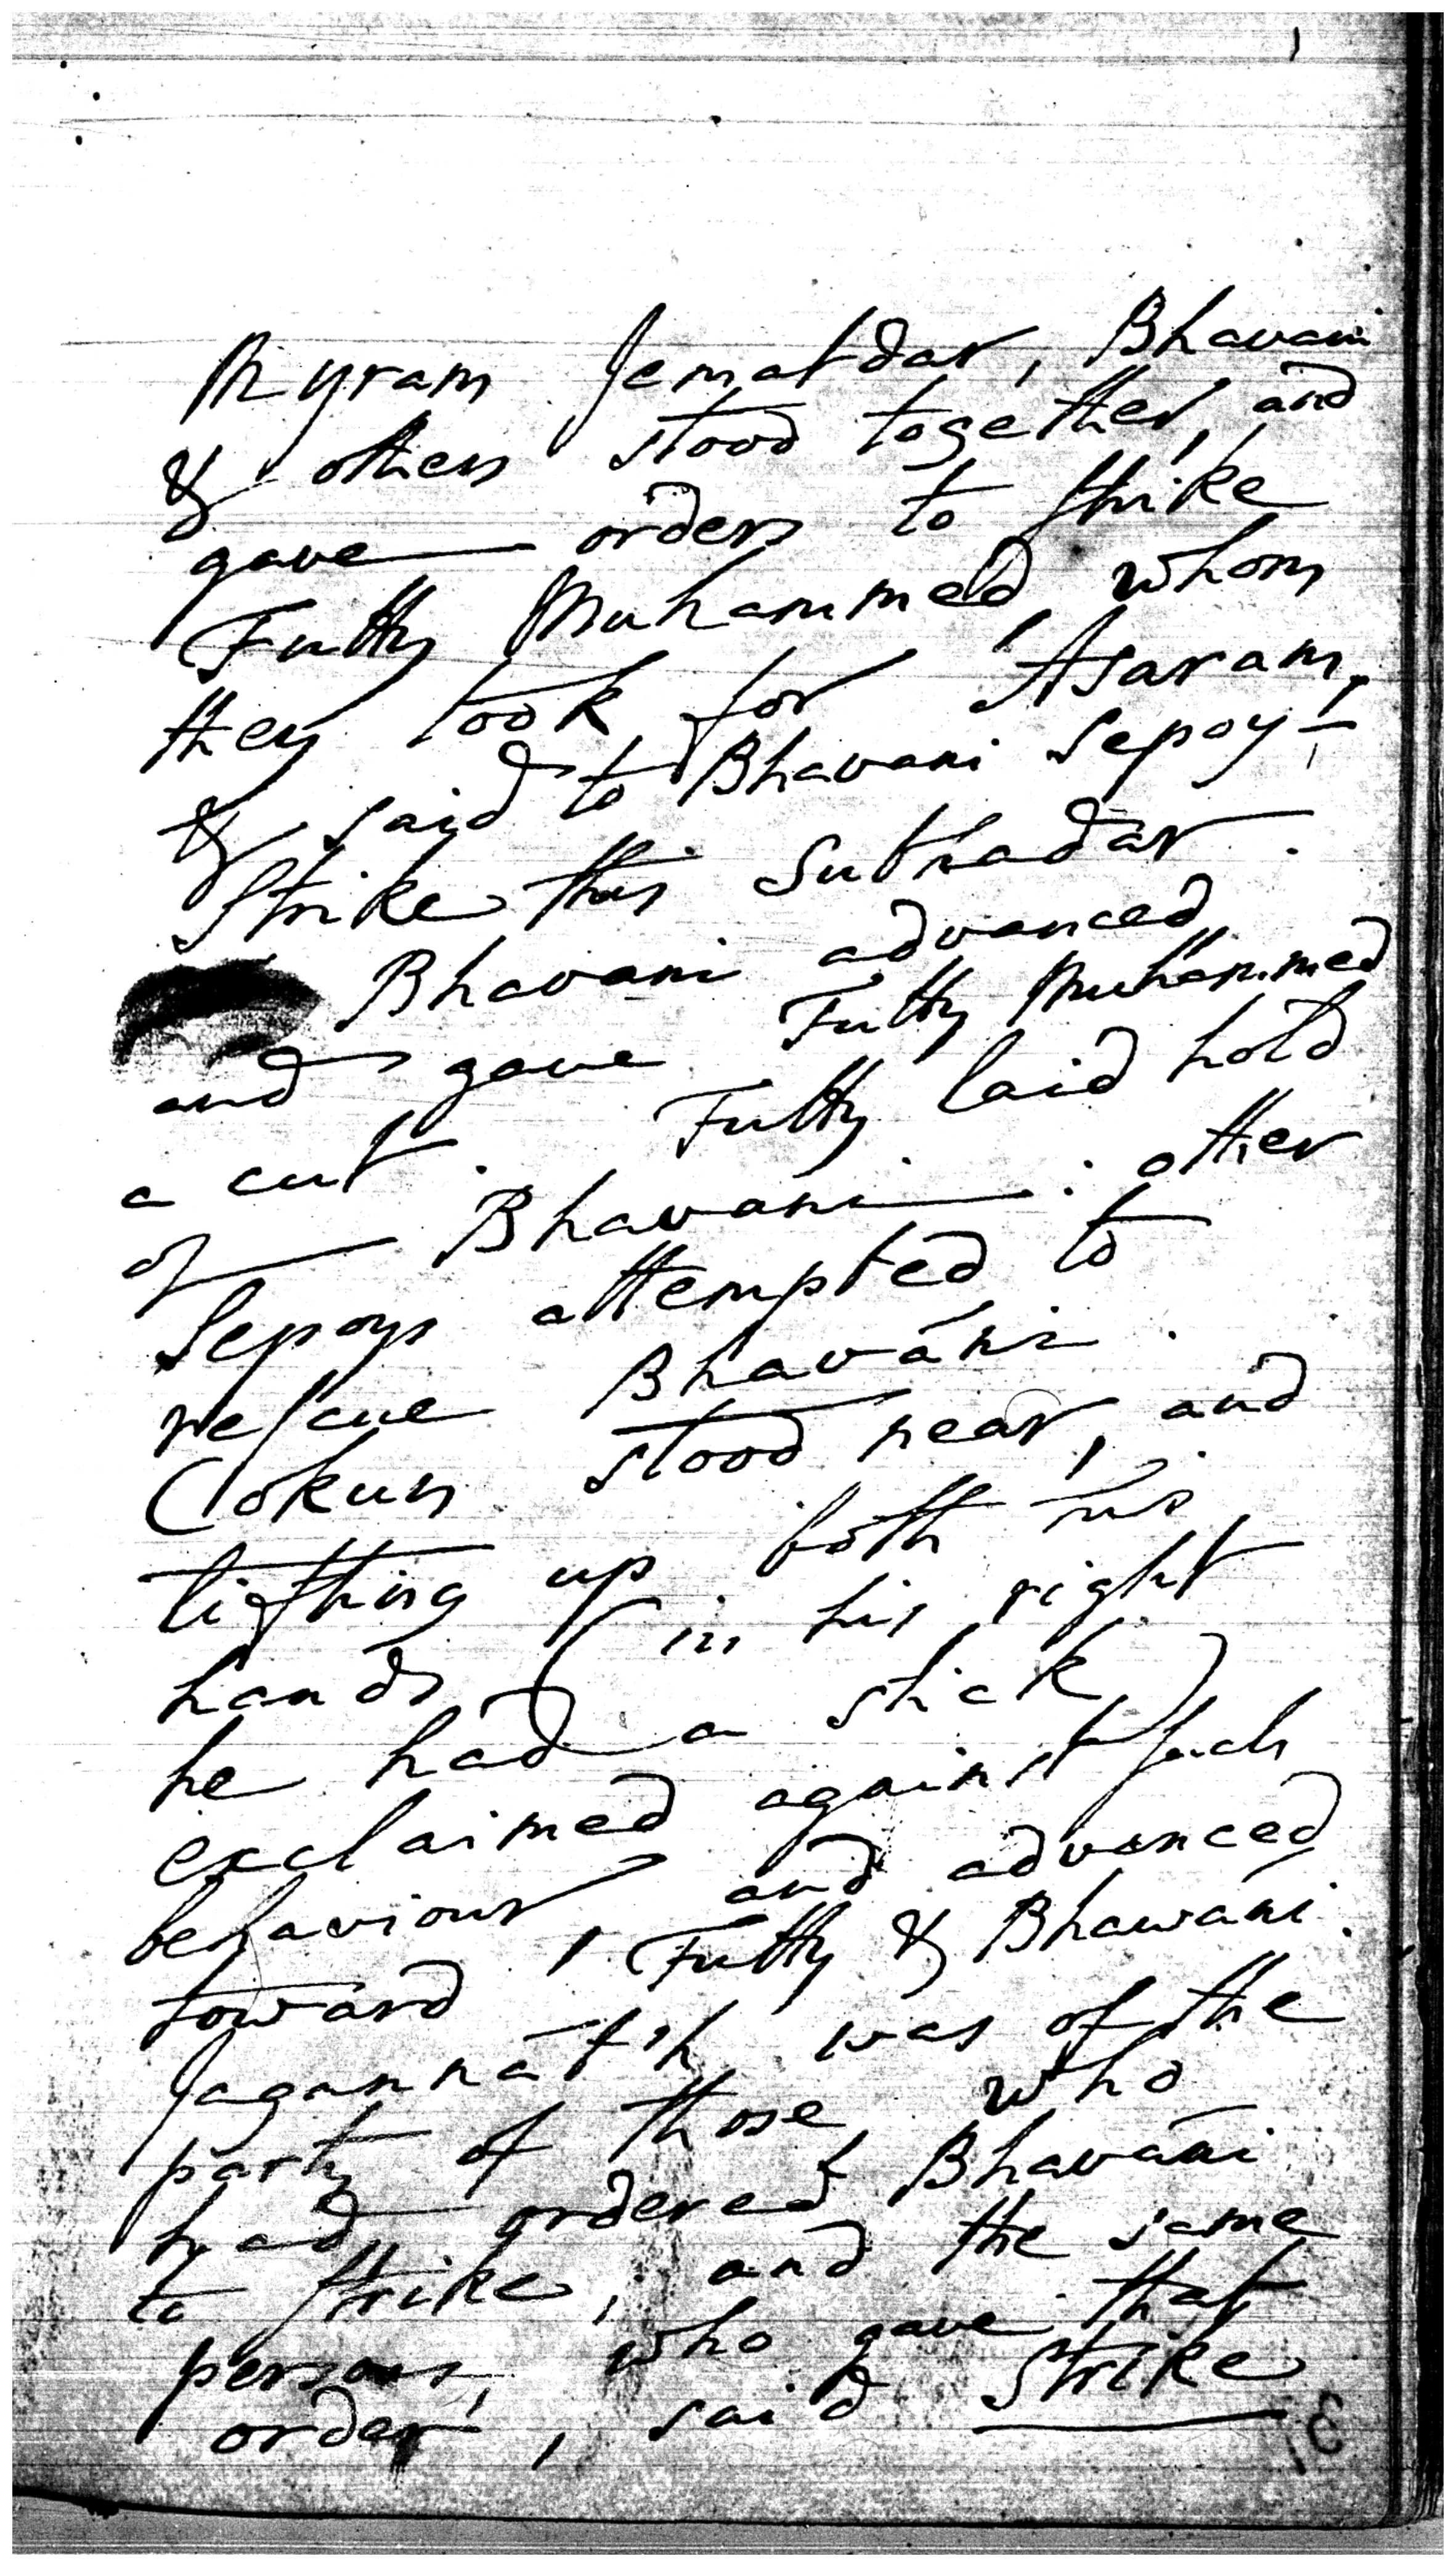 Myram Jematdar, Bhavani
& others stood together, and
gave orders to strike
Futty Muhammed whom
they took for Asaram,
& said to Bhavani Sepoy –
Strike this Subhadar.
Bhavani advanced
and gave Futty Muhammed
a cut. Futty laid hold
of Bhavani: other
Sepoys attempted to
rescue Bhaváni.
Cokun stood near, and
lifting up both his
hands (in his right
he had a stick)
exclaimed against such
behaviour, and advanced
toward Futty & Bhawáni.
Jagannát'h was of the
party of those who
had ordered Bhaváni
to strike, and the same
persons, who gave that
order, said Strike
31